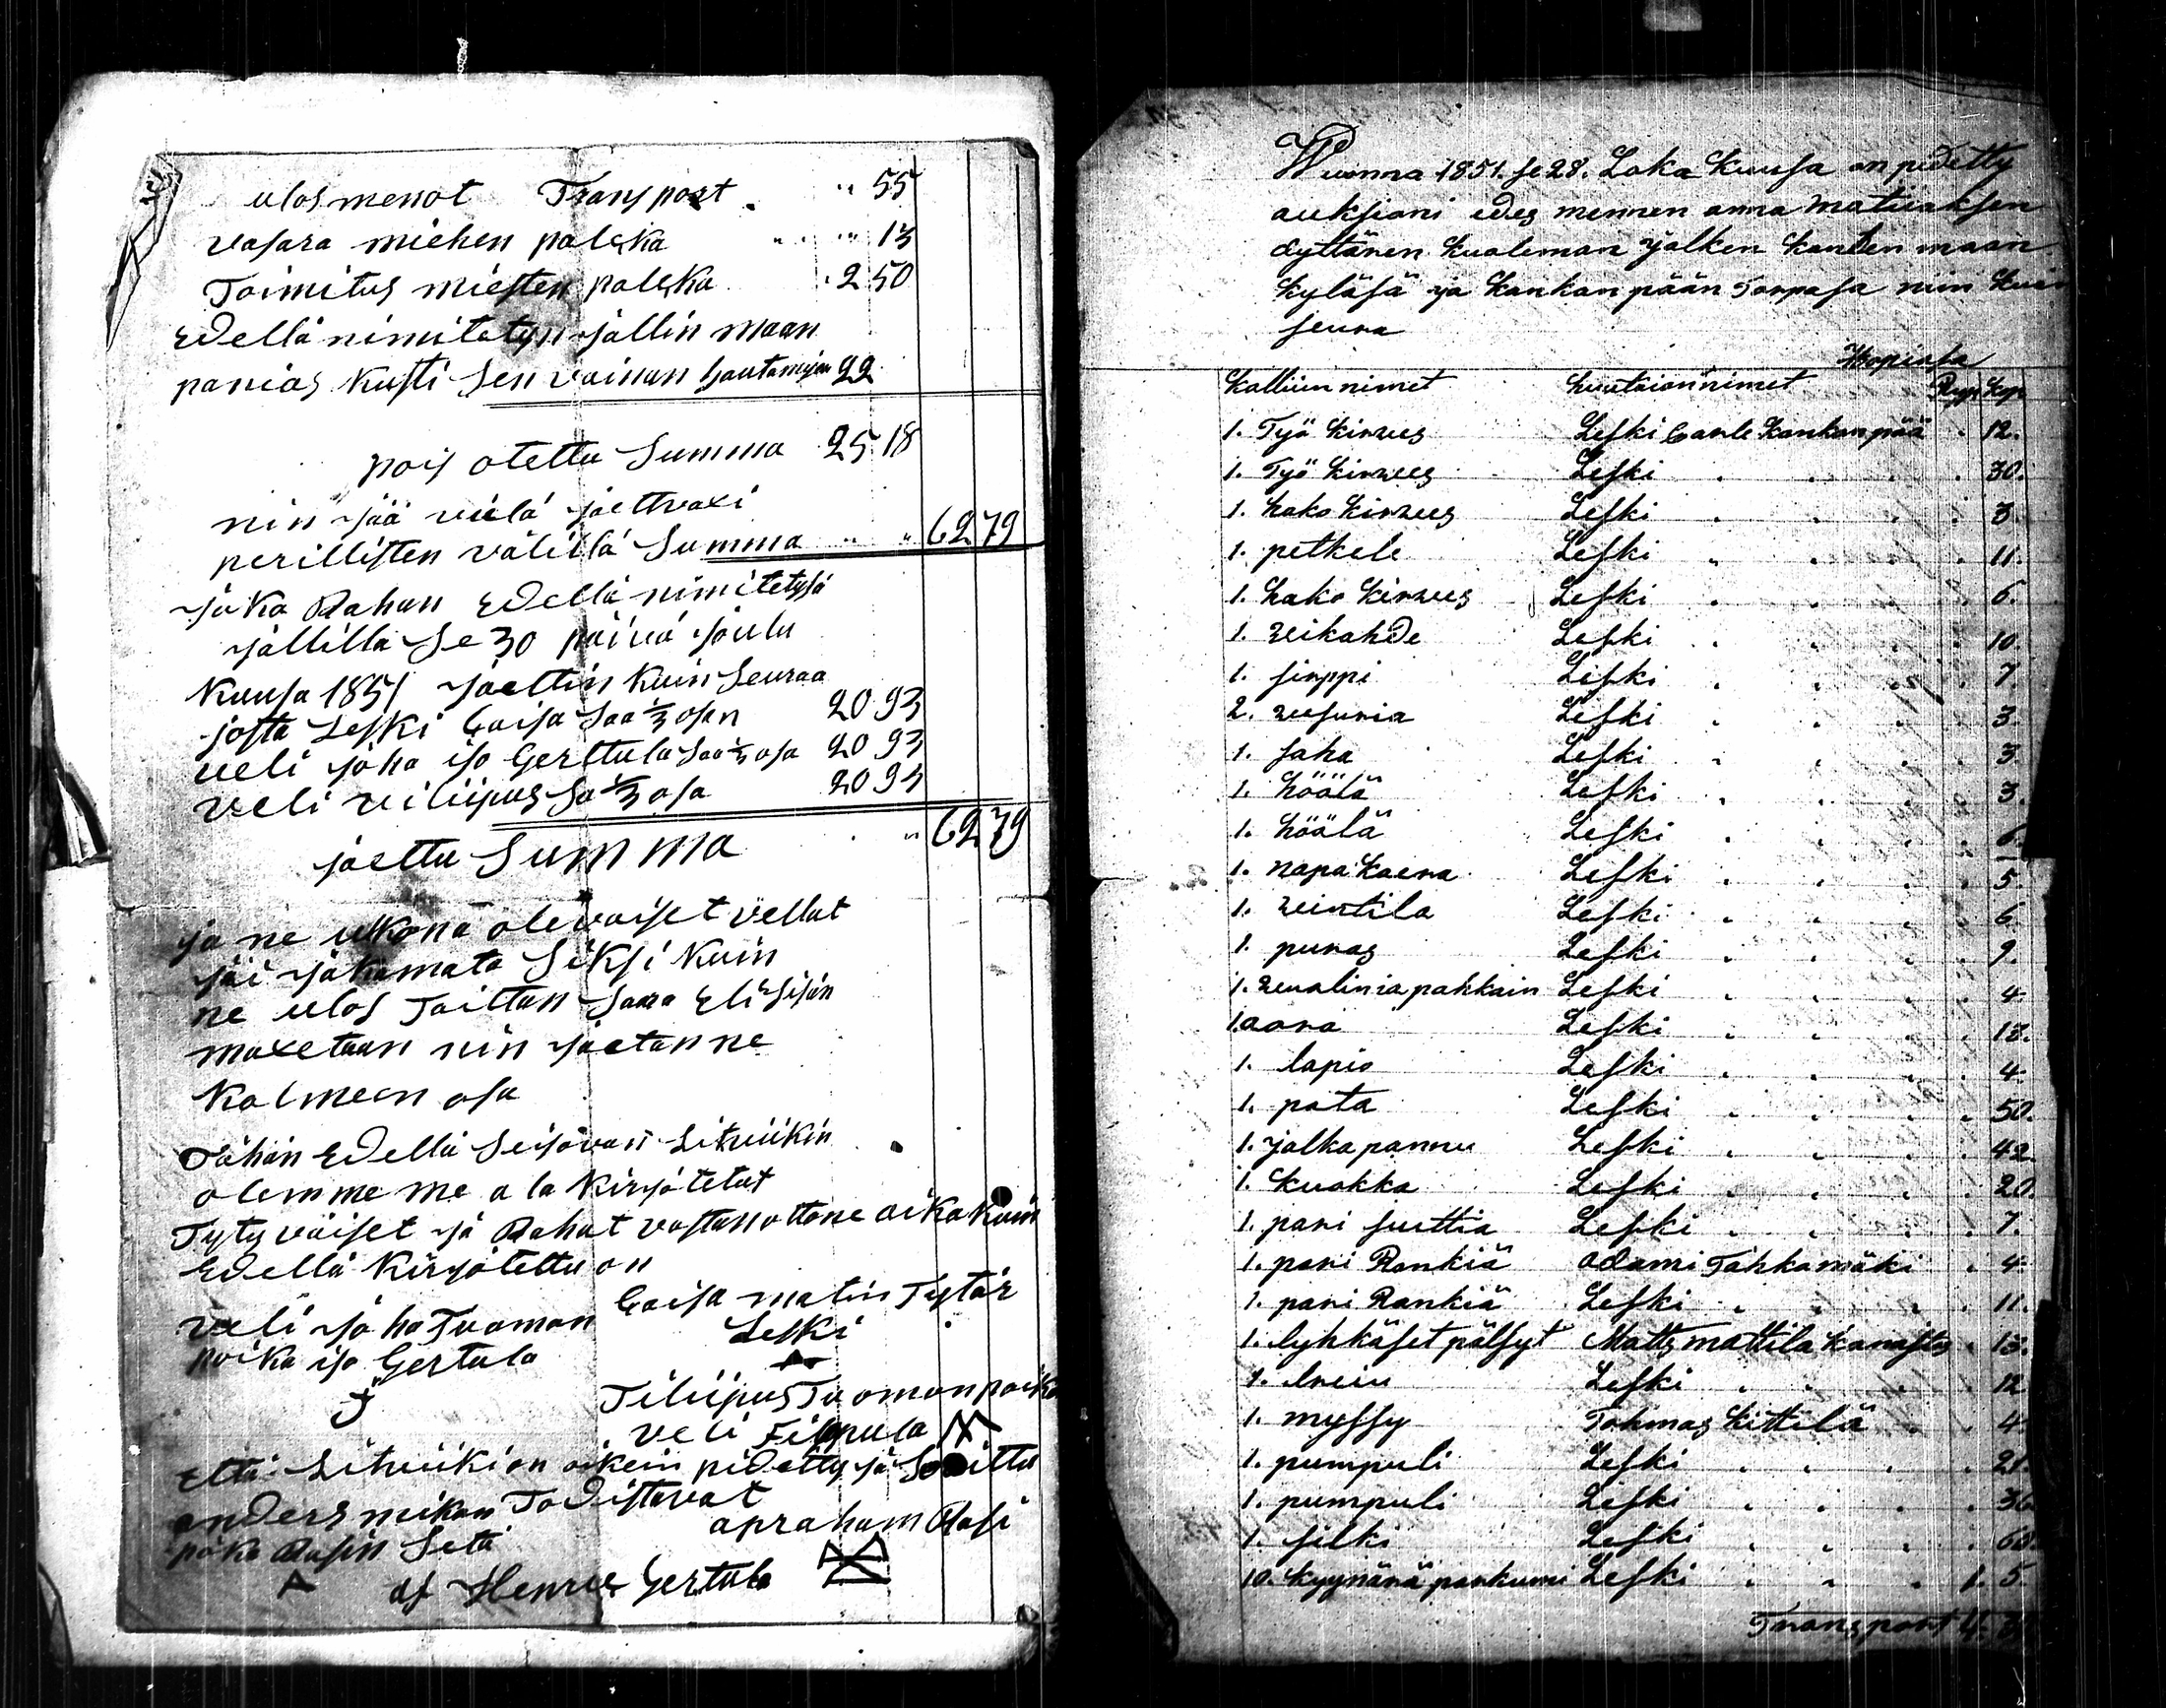 ulos menot Transport " 55
vasara miehen palcka " " " 13
Toimitus miesten palcka . 2 50
Edellä nimitetyn jällin maan
panias kusti Sen vainan hautamisen 22
pois otettu Summa 25 18
nin jää vielä jaettvaxi
perillisten välillä Summa " " 62 79
joka Rahan Edellä nimitetysä
jällillä Se 30 päivä joulu
Kuusa 1851 jaettin kuin Seuraa
josta Leski Caisa Saa 1/3 osan 20 93
veli joha iso Gerttula Saa 1/3 osa 20 93
veli viliipus Sa 1/3 osa 20 93
jaettu Summa " 62 79
ja ne ulkona olevaiset vellat
jäi jakamata Siksi kuin
ne ulos Taittan Saaa Eli Sisän
maxetaan nin jaetan ne
Kolmeen osa
Tähän Edellä Seisovan Sitwiikin
olemme me ala kirjotetut
Tytyväiset ja Rahat vastan ottane aika kuin
Edellä Kirjotettu on
Caisa matin Tytär
Leski
veli joha Tuoman
poika iso Gertula
Filiipus Tuoman poika
veli Filppula
Että Sitwiiki on oikein pidetty ja
anders mikon Todistavat
apraham Rasi
poka Rasin Setä
af Henric Gertula
Wuonna 1851. se 28. Loka Kuusa on pidetty
auksioni edes mennen anna matiaksen
dyttären Kualeman jälken kanten maan
kyläsä ja kankan pään Torpasa niin kuin
seura
Hopiasa
Kalliun nimet huutaian nimet Rup Kop
1. Työ kirves Leski Caale kankanpää . 12.
1. Työ kirves Leski 30.
1. hako kirves Leski 3.
1. petkele Leski 11.
1. hako kirves Leski 6.
1. veikahde Leski 10.
1. sirppi Leski 7.
2. vesuria Leski 3.
1. saha Leski 3.
1. höälä Leski 3.
1. höälä Leski 6.
1. napa kaera Leski 5.
1. veintila Leski 6.
1. puras Leski 9.
1. veualinia pahkain Leski 4.
1. aora Leski 13.
1. lapio Leski 4.
1. pata Leski 50.
1. jalka pannu Leski 42.
1. kuokka Leski 20.
1. pari suittia Leski 7.
1. pari Rankiä adami Tahkamäki . 4.
1. pari Rankiä Leski 11.
1. lyhkäset pälsyt Matts mattila . 13.
1. Leski 12
1. myssy Tohmas kittilä 4.
1. pumpuli Leski 21.
1. pumpuli Leski 36.
1. silki Leski 60.
10. kyynärä parkumi Leski 1. 5.
Transport 4.